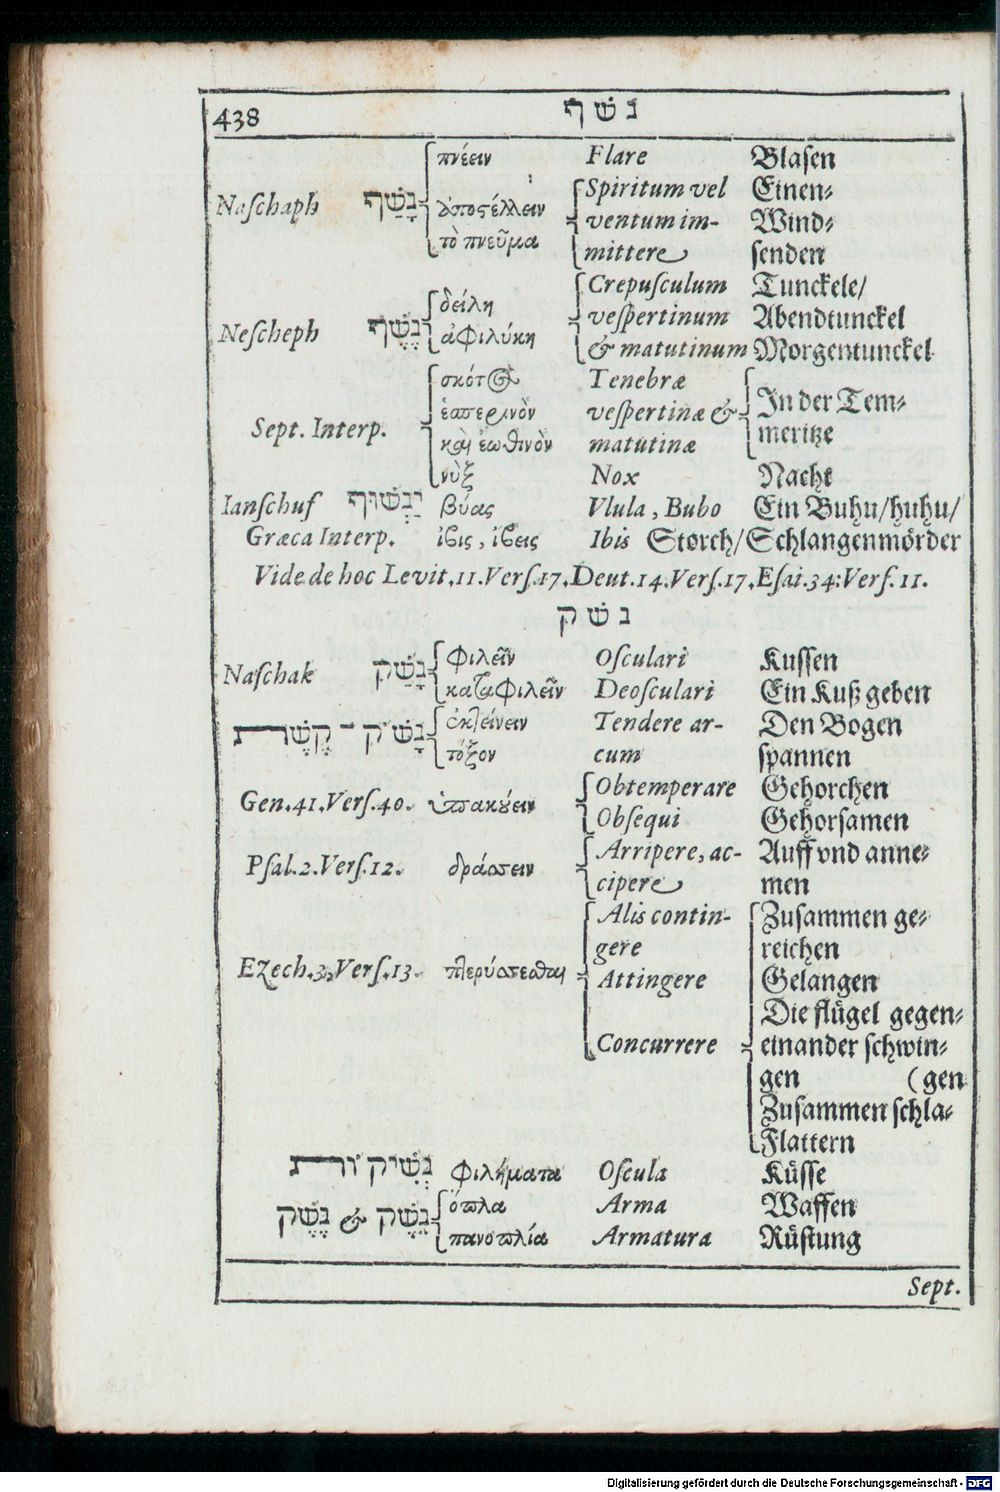 438 נשף
πνέειν Flare Blasen
Naschaph נָשַׁף ἀποστέλλειν Spiritum vel Einen-
ventum im- Wind-
τὸ πνεῦμα mittere senden
δείλη Crepusculum Tunckele/
Nescheph נֶשֶׁף vespertinum Abendtunckel
ἀφιλύκη & matutinum Morgentunckel
σκότος Tenebræ In der Tem-
ἑσπερινὸν vespertinæ &
Sept. Interp. καὶ ἑωθινὸν matutinæ meritze
νὺξ Nox Nacht
Ianschuf יַנְשׁוּף βύας Vlula, Bubo Ein Buhu/huhu/
Græca Interp. ἶβις, ἴβεις Ibis Storch/Schlangenmörder
Vide de hoc Levit. 11. Vers. 17. Deut. 14. Vers. 17. Esai. 34: Vers. 11.
נשק
Naschak נָשַׁק φιλεῖν Osculari Kussen
καταφιλεῖν Deosculari Ein Kuß geben
נָשַׁק־קֶשֶׁת ἐκτείνειν Tendere ar- Den Bogen
τόξον cum spannen
Gen. 41. Vers. 40. ὑπακούειν Obtemperare Gehorchen
Obsequi Gehorsamen
Psal. 2. Vers. 12. δράσσειν Arripere, ac- Auff vnd anne-
cipere men
Alis contin- Zusammen ge-
gere reichen
Ezech. 3. Vers. 13. πτερύσσεσθαι Attingere Gelangen
Die flügel gegen-
Concurrere einander schwin-
gen (gen
Zusammen schla-
Flattern
נְשִׁיקוֹת φιλήματα Oscula Küsse
נֶשֶׁק & נֵשֶׁק ὅπλα Arma Waffen
πανοπλία Armatura Rüstung
Sept.
Digitalisierung gefördert durch die Deutsche Forschungsgemeinschaft - DFG